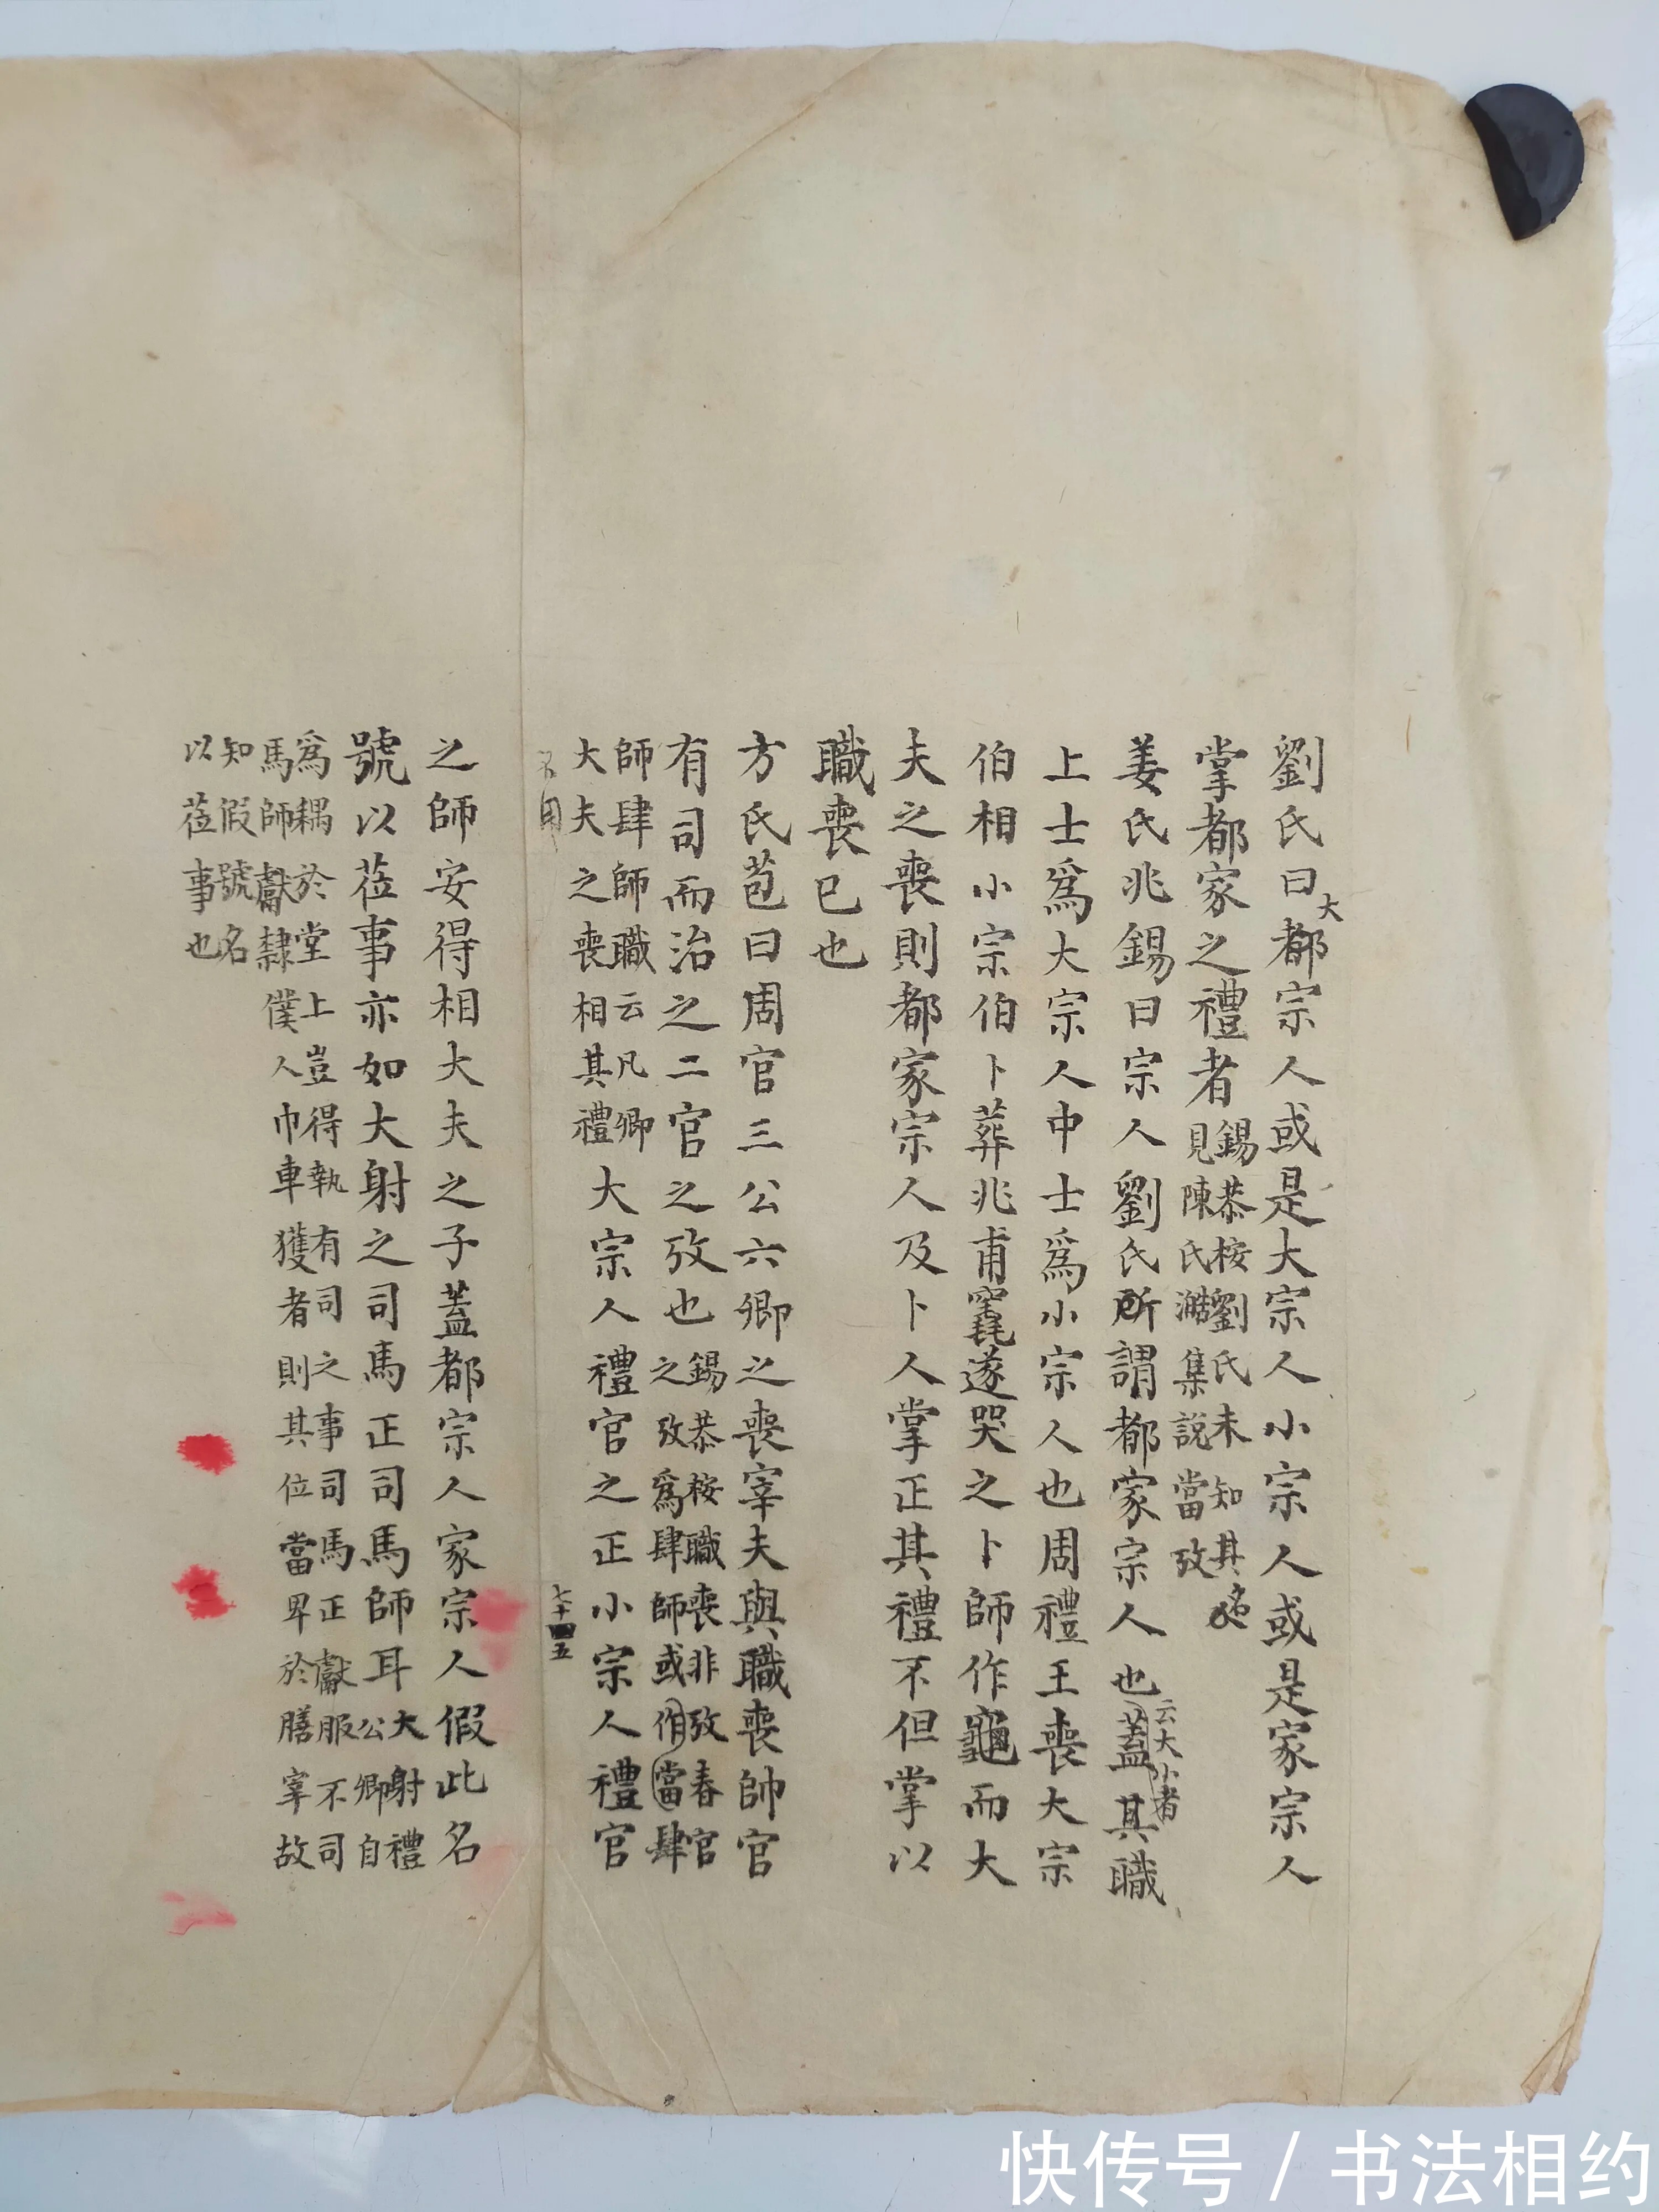 劉氏曰大都宗人或是大宗人小宗人或是家宗人
掌都家之禮者錫恭桉劉氏未知其名
見陳氏澔集說當攷
姜氏兆錫曰宗人劉氏所謂都家宗人也云大小者蓋其職
上士爲大宗人中士爲小宗人也周禮王喪大宗
伯相小宗伯卜葬兆甫竁遂哭之卜師作龜而大
夫之喪則都家宗人及卜人掌正其禮不但掌以
職喪已也
方氏苞曰周官三公六卿之喪宰夫與職喪帥官
有司而治之二官之攷也錫恭桉職喪非攷春官
之攷爲肆師或作當肆
師肆師職云凡卿
大夫之喪相其禮大宗人禮官之正小宗人禮官
七十四五
之師安得相大夫之子蓋都宗人家宗人假此名
號以莅事亦如大射之司馬正司馬師耳大射禮
公卿自
爲耦於堂上豈得執有司之事司馬正獻服不司
馬師獻隸僕人巾車獲者則其位當卑於膳宰故
知假號名
以莅事也
快传号 / 书法相约